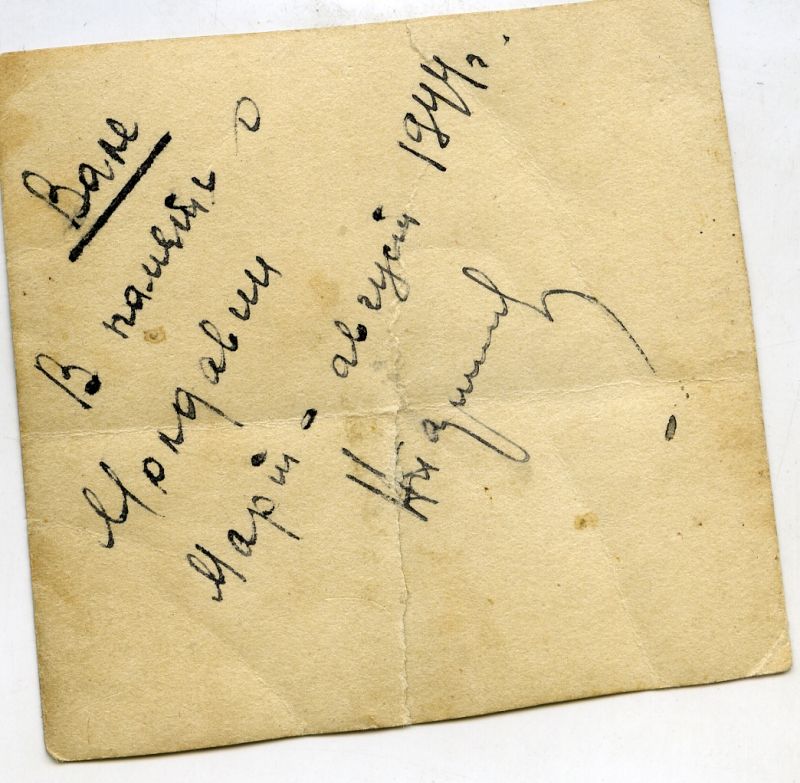 Вале
В память о
Молдавии
Март - август 1944 г.